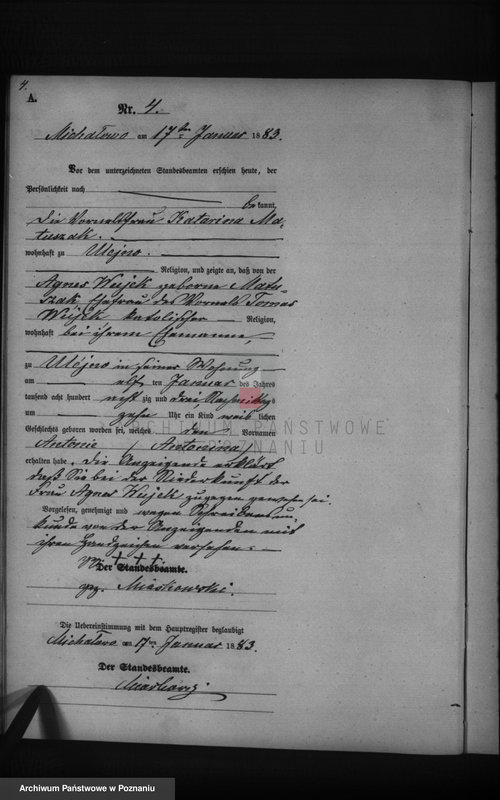 4.
A.
Nr. 4.
Michałowo am 17ten Januar 1883.
Vor dem unterzeichneten Standesbeamten erschien heute, der
Persönlichkeit nach
bekannt,
die Vornalsfrau Katarina Ma-
tuszak.
wohnhaft zu Ulejno.
Religion, und zeigte an, daß von der
Agnes Wujek geborne Matu-
szak Ehefrau des Vornals Tomas
Wujek katolischer Religion,
wohnhaft bei ihrem Ehemanne,
zu Ulejno in seiner Wohnung
am elf ten Januar des Jahres
tausend acht hundert acht zig und drei Nachmittags
um zehn Uhr ein Kind weib lichen
Geschlechts geboren worden sei, welches den Vornamen
Antonie (Antonina)
erhalten habe. Die Anzeigende erklärt
daß Sie bei der Niederkunft der
Frau Agnes Wujek zugegen gewesen sei.
Vorgelesen, genehmigt und wegen Schreibensun-
kunde von der Anzeigenden mit
ihren Handzeichen versehen: —
+ + +
Der Standesbeamte.
gez. Miaskowski.
Die Uebereinstimmung mit dem Hauptregister beglaubigt
Michałowo am 17ten Januar 1883.
Der Standesbeamte.
ARCHIWUM PAŃSTWOWE
W POZNANIU
Archiwum Państwowe w Poznaniu